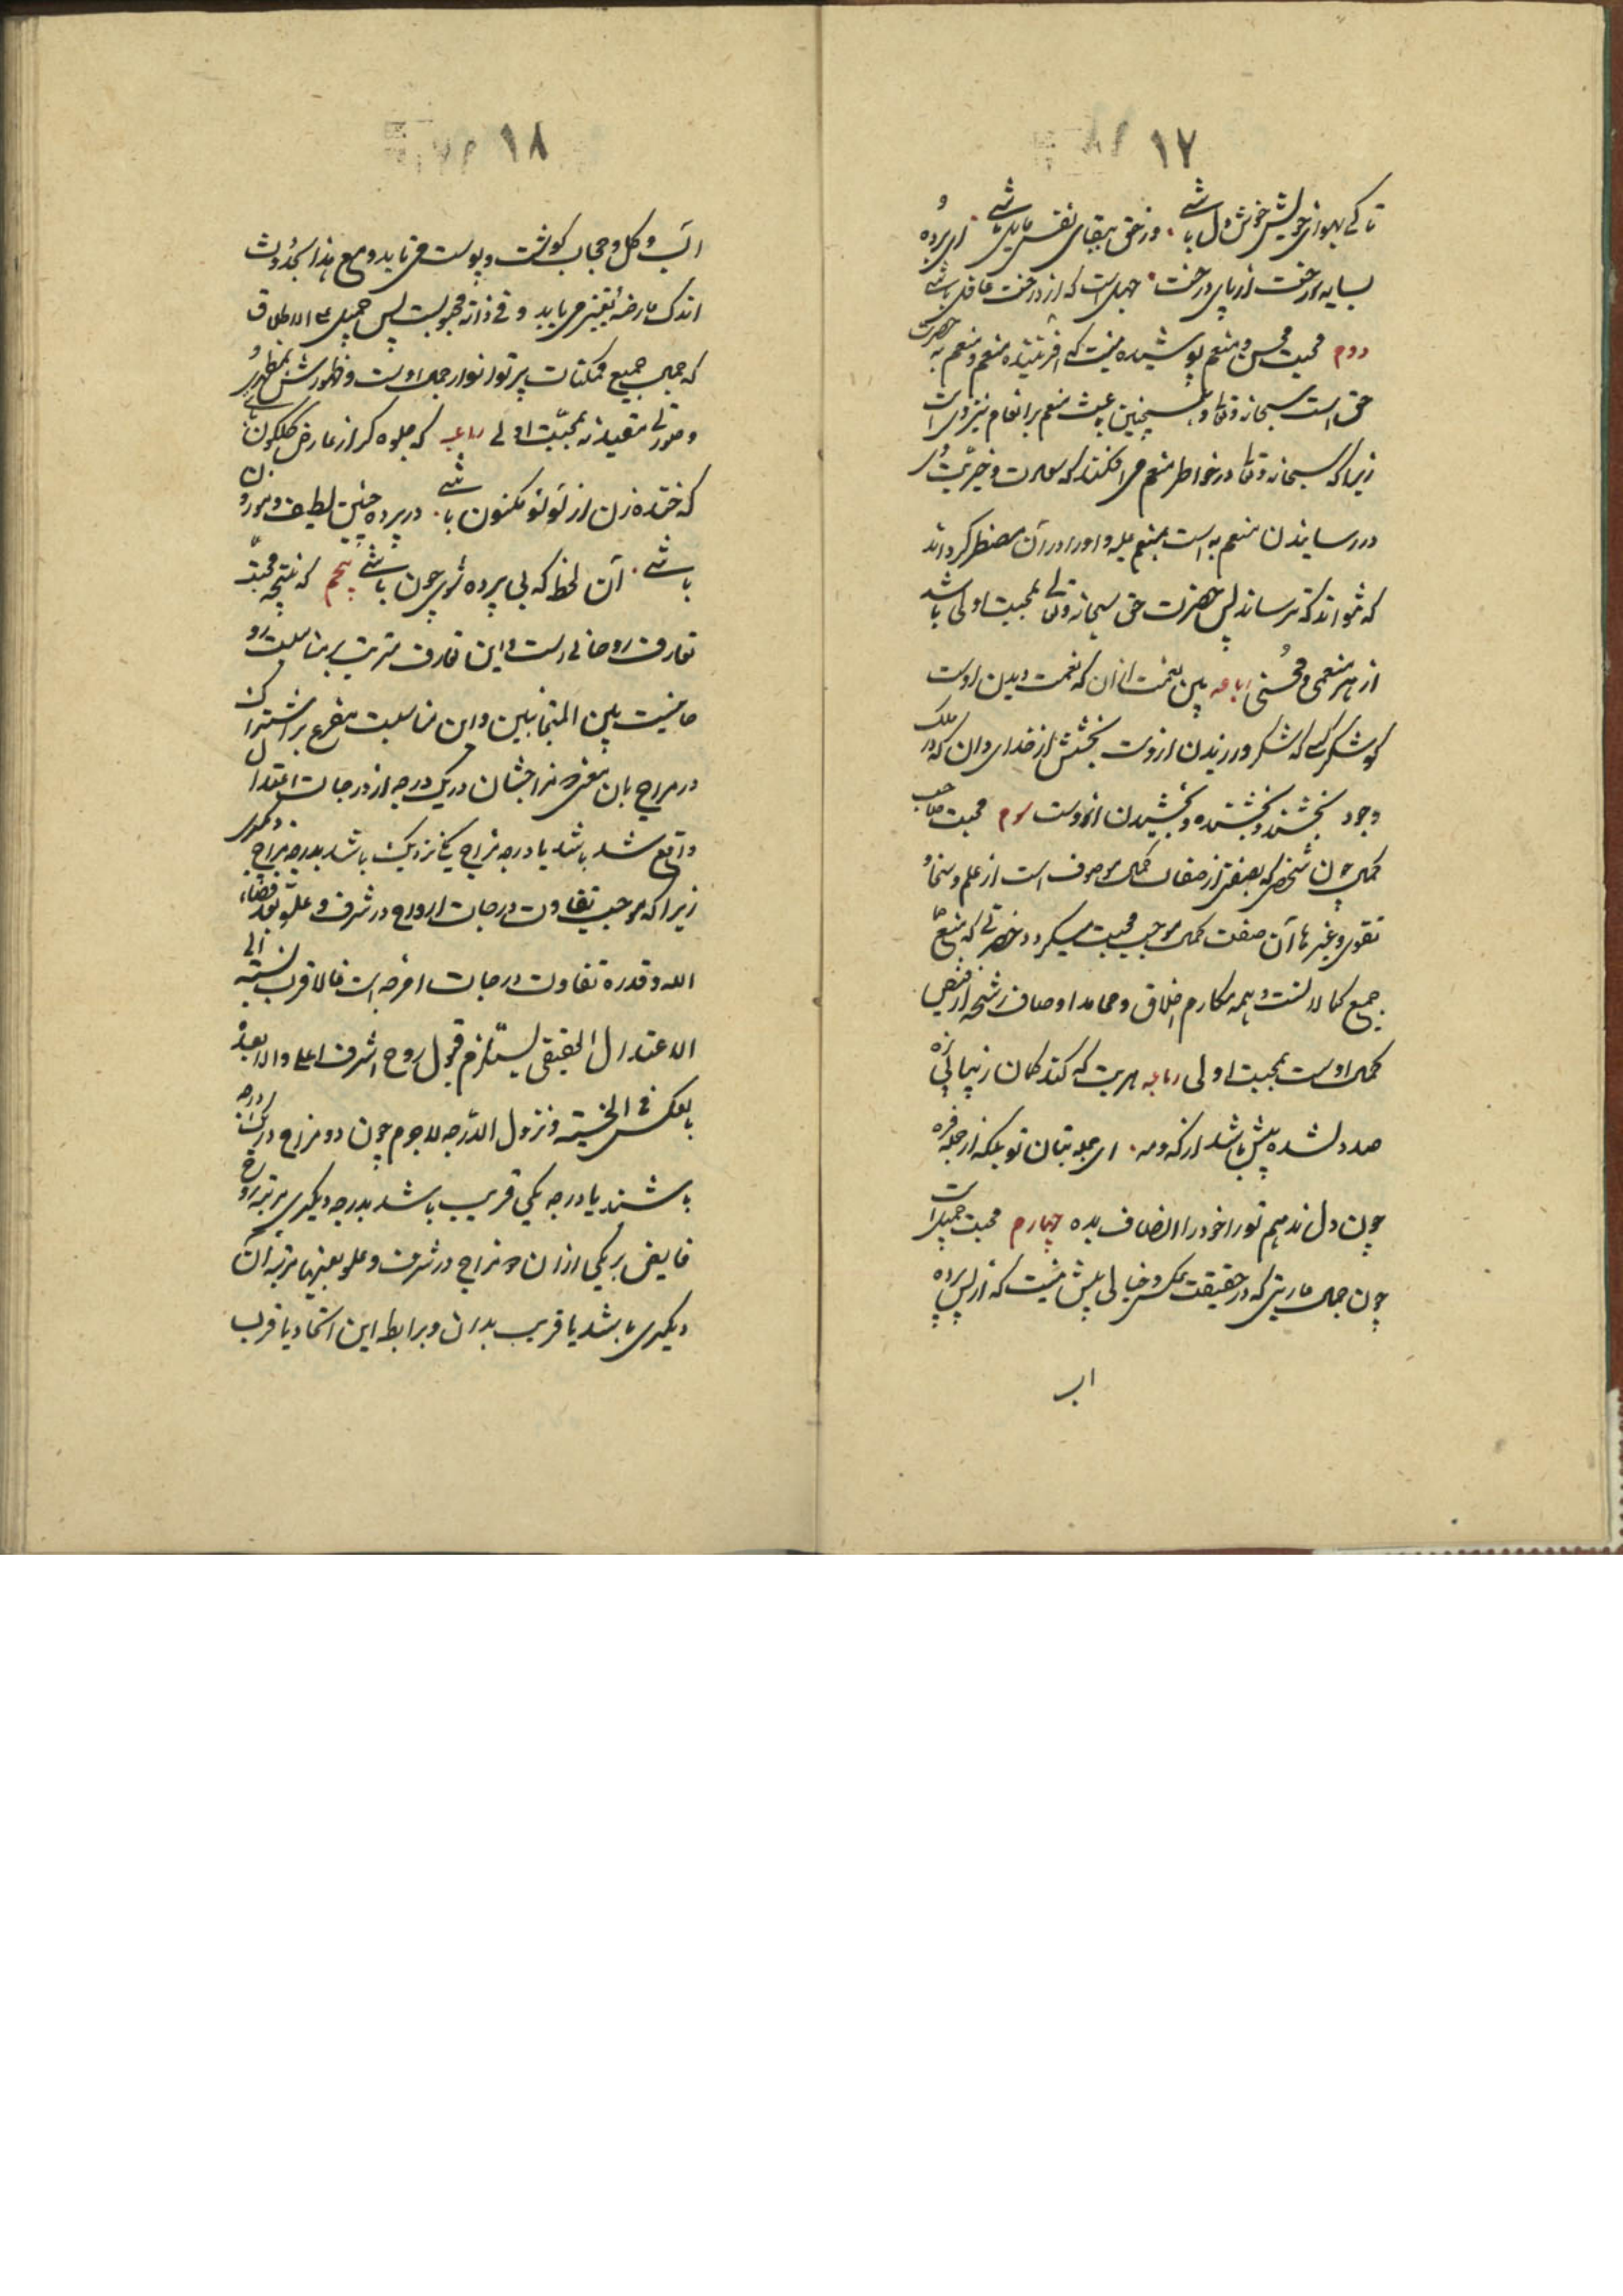 ١٧
تا کے بهوای خویش خوش دل باشے . وز حق ببقای نفس مایل باشے . ای برده
بسایه رخت از پای درخت . جهل است که از درخت غافل باشے
دوم محبت محسن و منعم پوشیده نیست که افریننده منعم و منعم به حضرت
حق است سبحانه و تعالی و همچنین باعث منعم بر انعام نیز وی است
زیرا که سبحانه و تعالی در خواطر منعم می افکند که سعادت و خیریت وی
در رسانیدن منعم به است بمنعم علیه و او را در آن مضطر کرداند
که نتواند که نرساند پس حضرت حق سبحانه و تعالی بمحبت اولی باشد
از هر منعمی و محسنی رباعیه بین نعمت ازان که نعمت دیدن اوست
کو شکر کسے که شکر ورزیدن ازوست بخشش از خدای دان که در ملک
وجود بخشنده و بخشیده و بخشیدن ازوست سوم محبت صاحب
کمال چون شخصی که بصفتی از صفات کمال موصوف است از علم و سخا و
تقوی و غیرها آن صفت کمال موجب محبت میکردد حضرتے که منبع
جمیع کمالاتست و همه مکارم اخلاق و محامد اوصاف رشحه از فیض
کمال اوست بمحبت اولی رباعیه هریت که کند کمان زیبائی زه
صد دلشده بیش باشد از که و مه . ای جمله بتان تو بلکه از جمله فره
چون دل ندهیم تو را خود را انصاف بده چهارم محبت جمیل است
چون جمال عاریتی که در حقیقت عکس و خیالی بیش نیست که از پس پرده
اب
١٨
اب و کل و حجاب کوشت و پوست می تابد و مع هذا بحدوث
اندک عارضه تغییر می یابد و فی ذاته محبوبست پس جمیل علی الاطلاق
که جمال جمیع ممکنات پرتو انوار جمال اوست و ظهورش بمظهری و
صورتی مقید نه بمحبت اولے رباعیه که جلوه کر از عارض کلکون باشے
که خنده زن از لؤلؤ مکنون باشے . در پرده چنین لطیف و موزون
باشے . آن لحظه که بی پرده شوی چون باشے پنجم که نتیجه محبت
تعارف روحانی است و این تعارف مترتب بر مناسبت رو
حانیست بین المتحابین و این مناسبت متفرع بر اشتراک
در مزاج بان معنی که مزاجشان در یک درجه از درجات اعتدال
واقع شده باشد یا درجه مزاج یکے نزدیک باشد بدرجه مزاج دیکری
زیرا که موجب تفاوت درجات ارواح در شرف و علو بعد قضاء
الله و قدره تفاوت درجات امزجه است فالاقرب نسبته الی
الاعتدال الحقیقی یستلزم قبول روح اشرف اعلی و الابعد
بالعکس فی الخسته و نزول الدرجه لاجرم چون دو مزاج در یک درجه
باشند یا درجه یکی قریب باشد بدرجه دیکری مرتبه روح
فایض بر یکی از ان دو مزاج در شرف و علو بعینها مرتبه آن
دیکری باشد یا قریب بدان و برابطه این اتحاد یا قرب